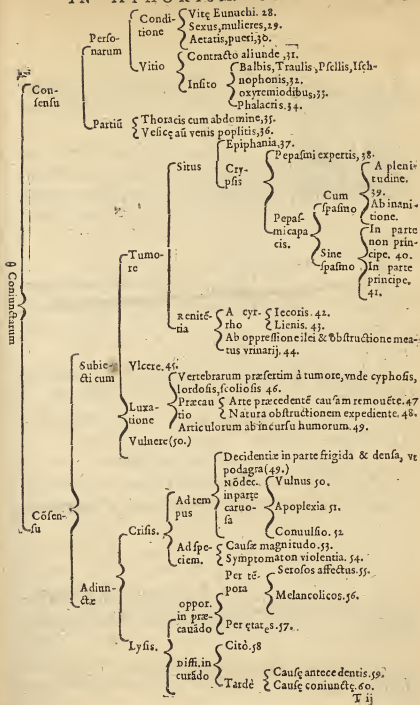 Condi-
tione
Vitę Eunuchi. 28.
Sexus, mulieres, 29.
Aetatis, pueri, 30.
Perso-
narum
Vitio
Contracto aliunde, 31.
Insito
Balbis, Traulis, Psellis, Isch-
nophonis, 32.
oxyremiodibus, 33.
Phalacris. 34.
Con-
sensu
Partiū
Thoracis cum abdomine, 35.
Vesicę aū venis poplitis, 36.
θ Coniunctarum
Situs
Epiphania, 37.
Cry-
psis
Pepasmi expertis, 38.
Pepas-
mi capa
cis.
Cum
spasmo
A pleni-
tudine.
39.
Ab inani
tione.
Sine
spasmo
In parte
non prin-
cipe. 40.
In parte
principe.
41.
Tumo-
re
Renitē-
tia
A cyr-
rho
Iecoris. 42.
Lienis. 43.
Ab oppressione ilei & obstructione mea-
tus vrinarij. 44.
Subie-
cti cum
Vlcere. 45.
Luxa-
tione
Vertebrarum præsertim à tumore, vnde cyphosis,
lordosis, scoliosis 46.
Præcau
tio
Arte præcedentē causam remouēte. 47
Natura obstructionem expediente. 48.
Articulorum ab incursu humorum. 49.
Vulnere (50.)
Cōsen-
su
Adiun-
ctæ
Crisis.
Ad tem
pus
Decidentiæ in parte frigida & densa, vt
podagra (49.)
Nō dec.
in parte
carno-
sa
Vulnus 50.
Apoplexia 51.
Conuulsio. 52
Ad spe-
ciem.
Causæ magnitudo. 53.
Symptomaton violentia. 54.
Lysis.
oppor.
in præ-
cauādo
Per tē-
pora
Serosos affectus. 55.
Melancolicos. 56.
Per ętates. 57.
Diffi. in
curādo
Citò. 58
Tardè
Causę antecedentis. 59.
Causę coniunctę. 60.
T ij